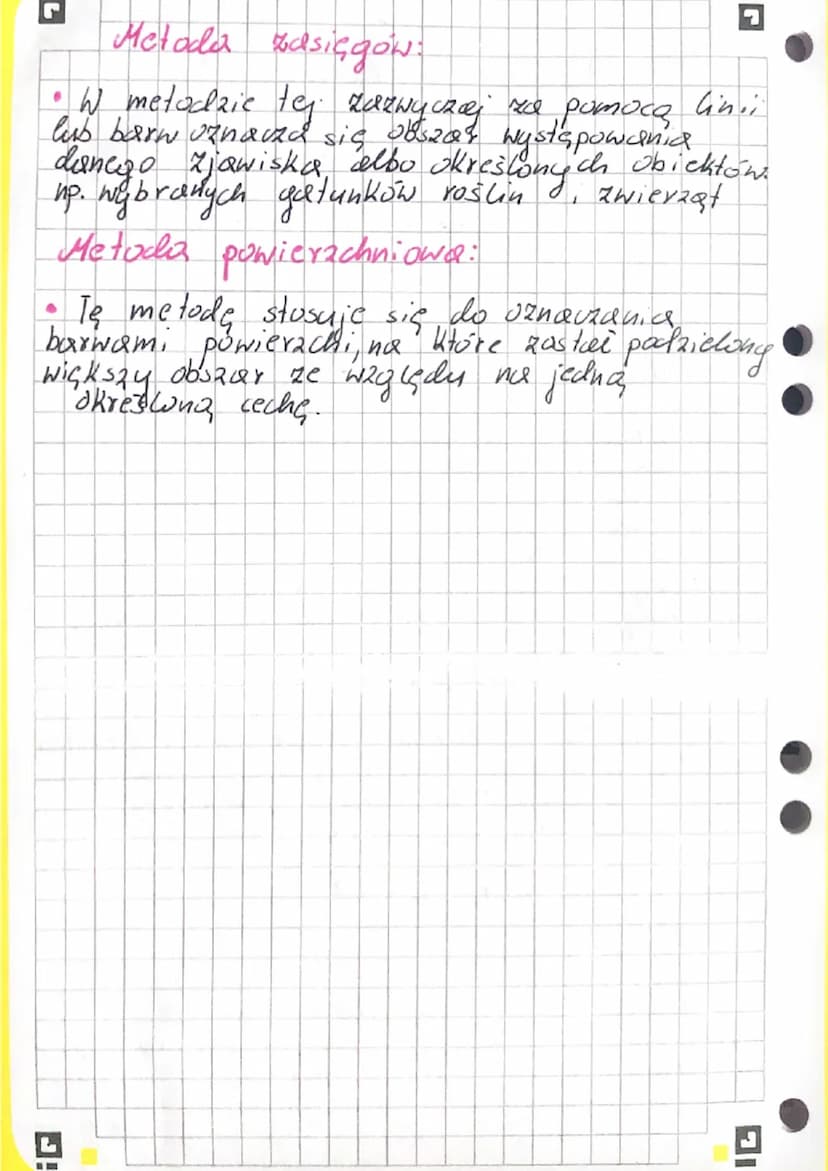 Metoda zasięgów:
• W metodzie tej zazwyczaj za pomocą linii
lub barw oznacza się obszar występowania
danego zjawiska albo określonych obiektów
np. wybranych gatunków roślin i zwierząt
Metoda powierzchniowa:
• Tę metodę stosuje się do oznaczania
barwami powierzchni, na które został podzielony
większy obszar ze względu na jedną
określoną cechę.